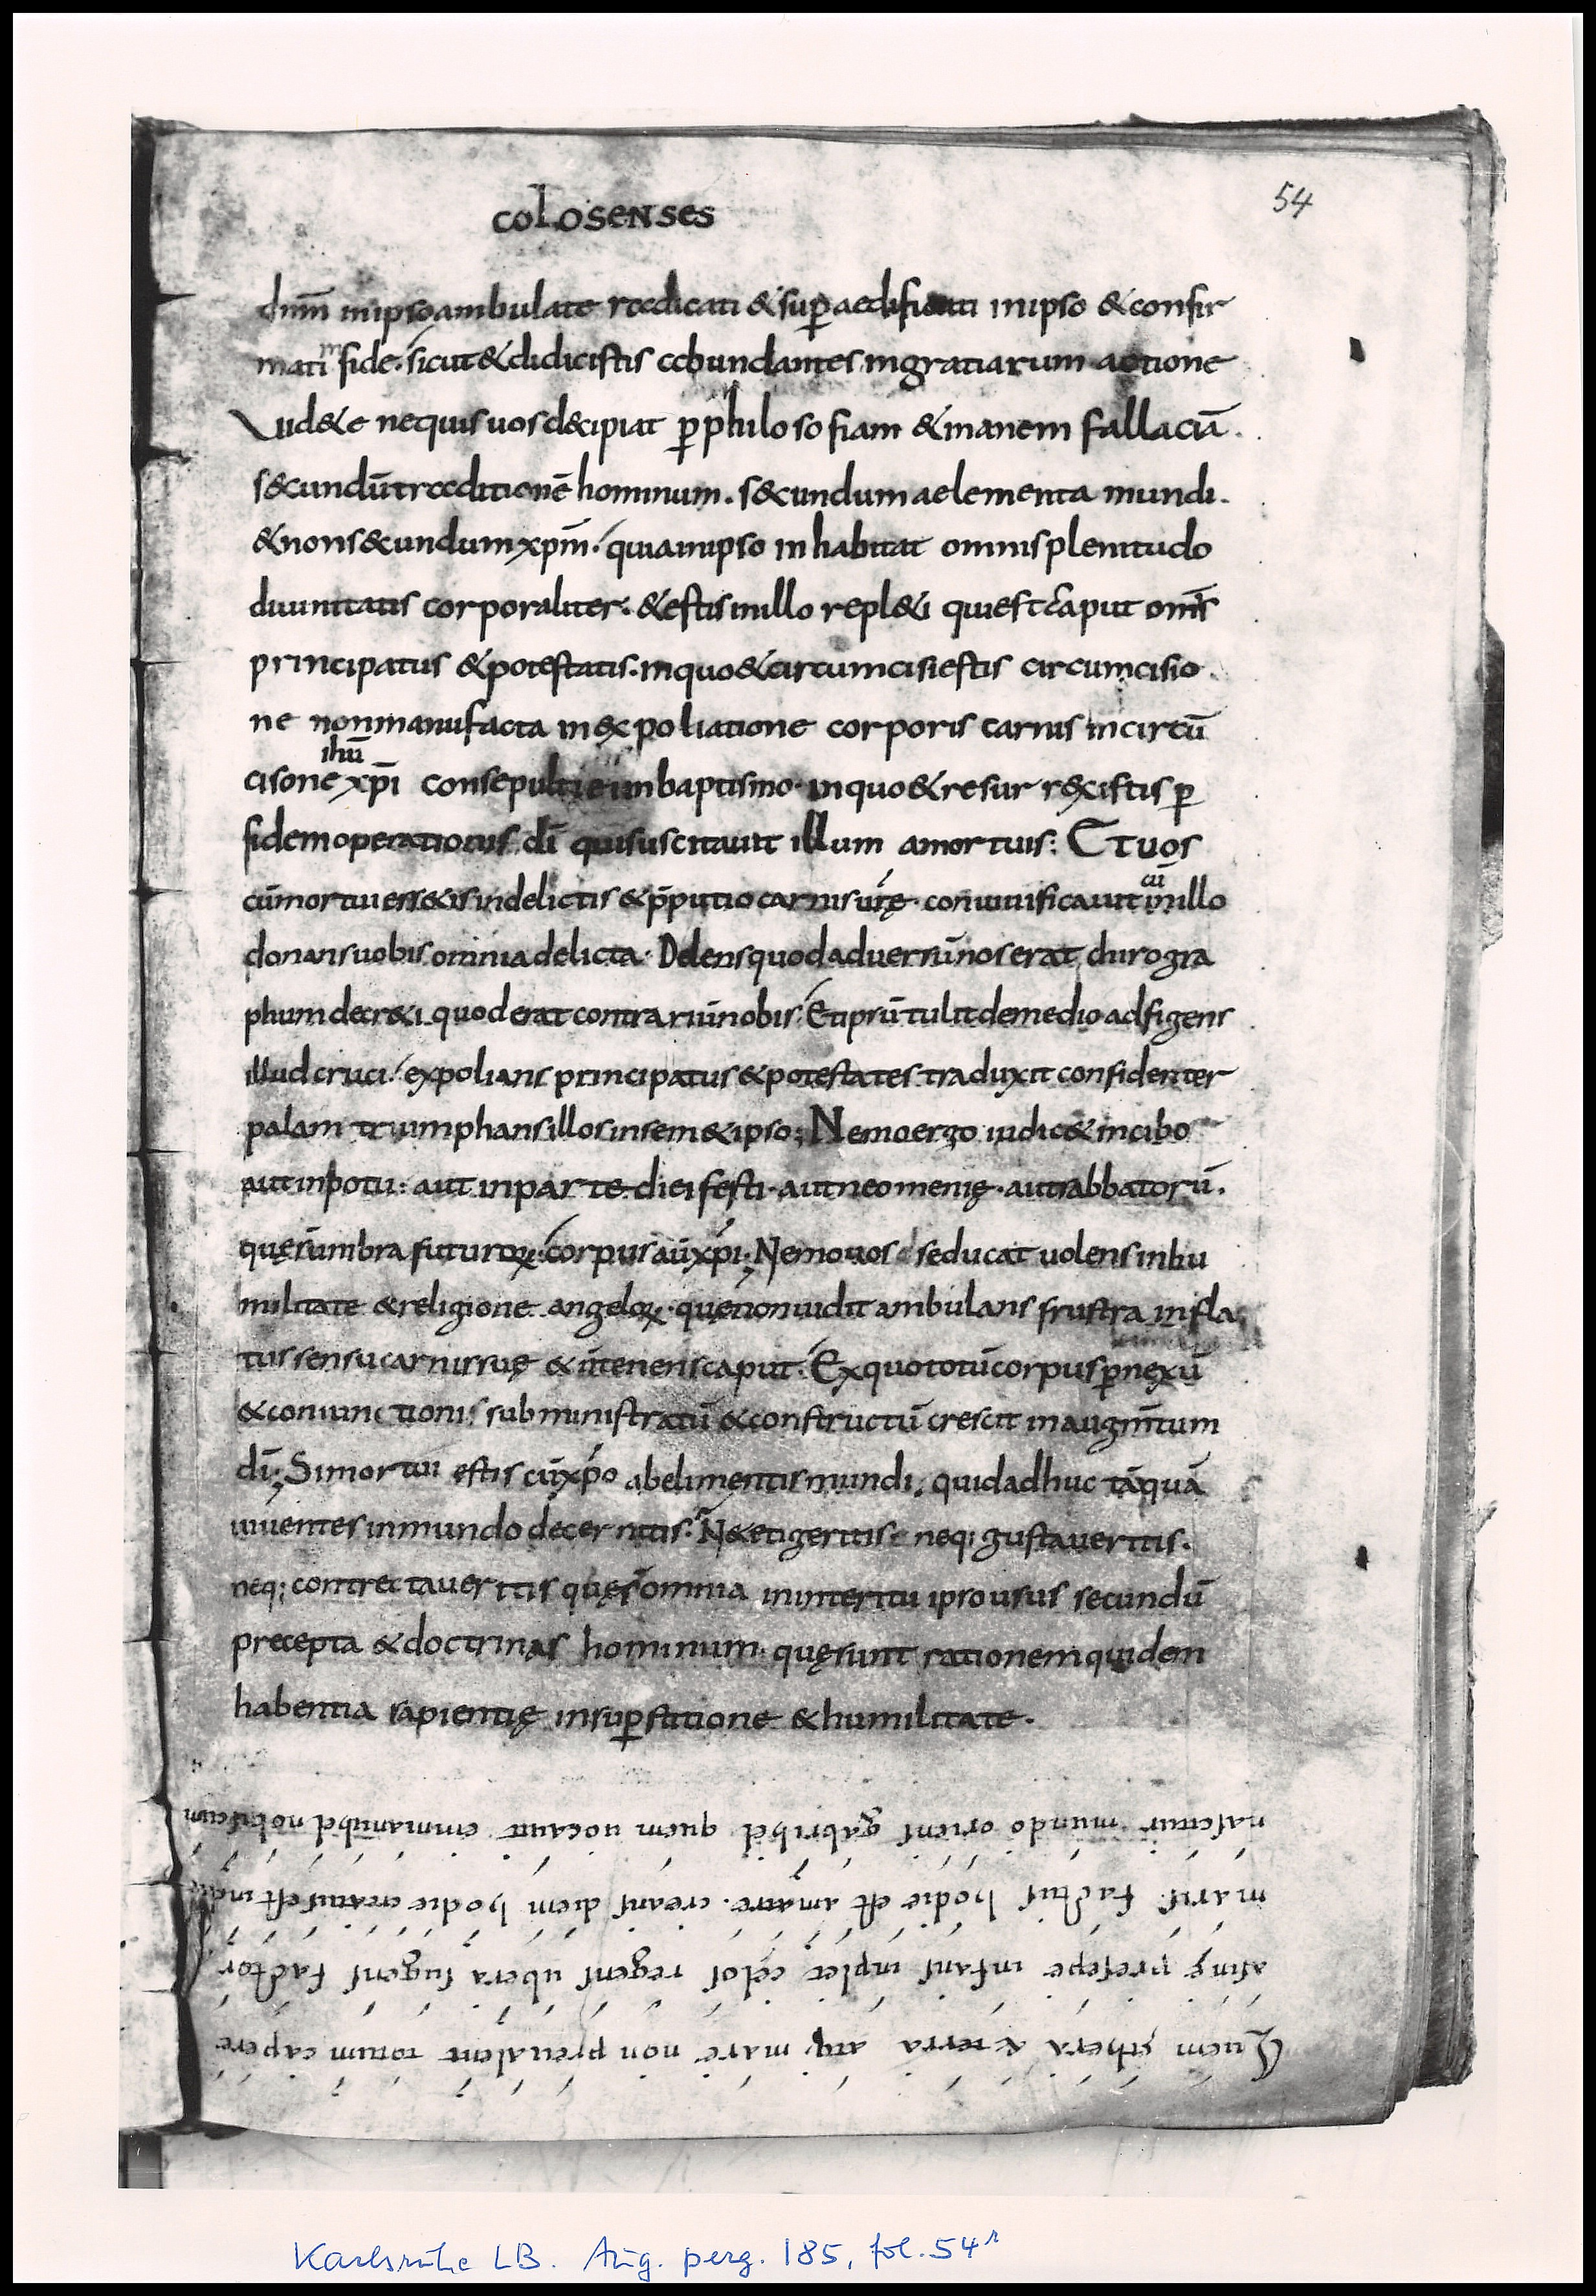 COLOSENSES
54
dnm̄ inipsoambulate radicati &sup̄aedificati inipso &confir
mati in fide. sicut&didicistis abundantes ingratiarum actione
Uid&e nequis uos d&cipiat p̄philosofiam &inanem fallaciā.
s&cundūtraditionē hominum. s&cundum aelementa mundi.
&nons&cundumxpm̄. quiainipso inhabitat omnisplenitudo
diuinitatis corporaliter. &estisinillo repl&i quiestcaput omīs
principatus &potestatis. inquo&circumcisiestis circumcisio
ne nonmanufacta inexpoliatione corporis carnis incircū
cisone ihū xpī consepulti ei inbaptismo. inquo&resurrexistis p̄
fidemoperationis dī quisuscitauit illum amortuis: Etuos
cūmortuiess&isindelictis &p̄putiocarnisurę. conuiuificauit cū inillo
donansuobisomniadelicta. Delensquodaduersūnoserat chirogra
phumdecr&i quoderatcontrariūnobis. Etipsūtulitdemedioadfigens
illudcruci. expoliansprincipatus&potestates traduxit confidenter
palam triumphansillosinsem&ipso; Nemoergo iudic&incibo
autinpotu: aut inparte dieifesti. autneomenię. autsabbatorū.
quęsūmbrafuturoꝝ. corpusaūxpī; Nemouos seducat uolensinhu
militate &religione angeloꝝ. quęnonuidit ambulans frustra infla
tussensucarnissuę &n̄tenenscaput. Exquototūcorpusp̄nexū
&coniunctionis subministratū &constructū crescit inaugm̄tum
dī; Simortui estis cūxpo abelimentismundi. quidadhuc tāquā
uiuentesinmundo decernitis. N&etigeritis neq; gustaueritis.
neq; contrectaueritis quęs̄omnia ininteritu ipsousus secundū
precepta &doctrinas hominum. quęsunt rationemquidem
habentia sapientię insup̄stitione &humilitate.
Quem ethera & terra atq; mare non preualent totum capere
asinę presepe infans inplet celos regens ubera sugens factor
matris factus hodie est amatre. creans diem hodie creatus est indie
nascitur mundo oriens gabrihel quem uocauit emmanuhel nobiscum
Karlsruhe LB. Aug. perg. 185, fol. 54r